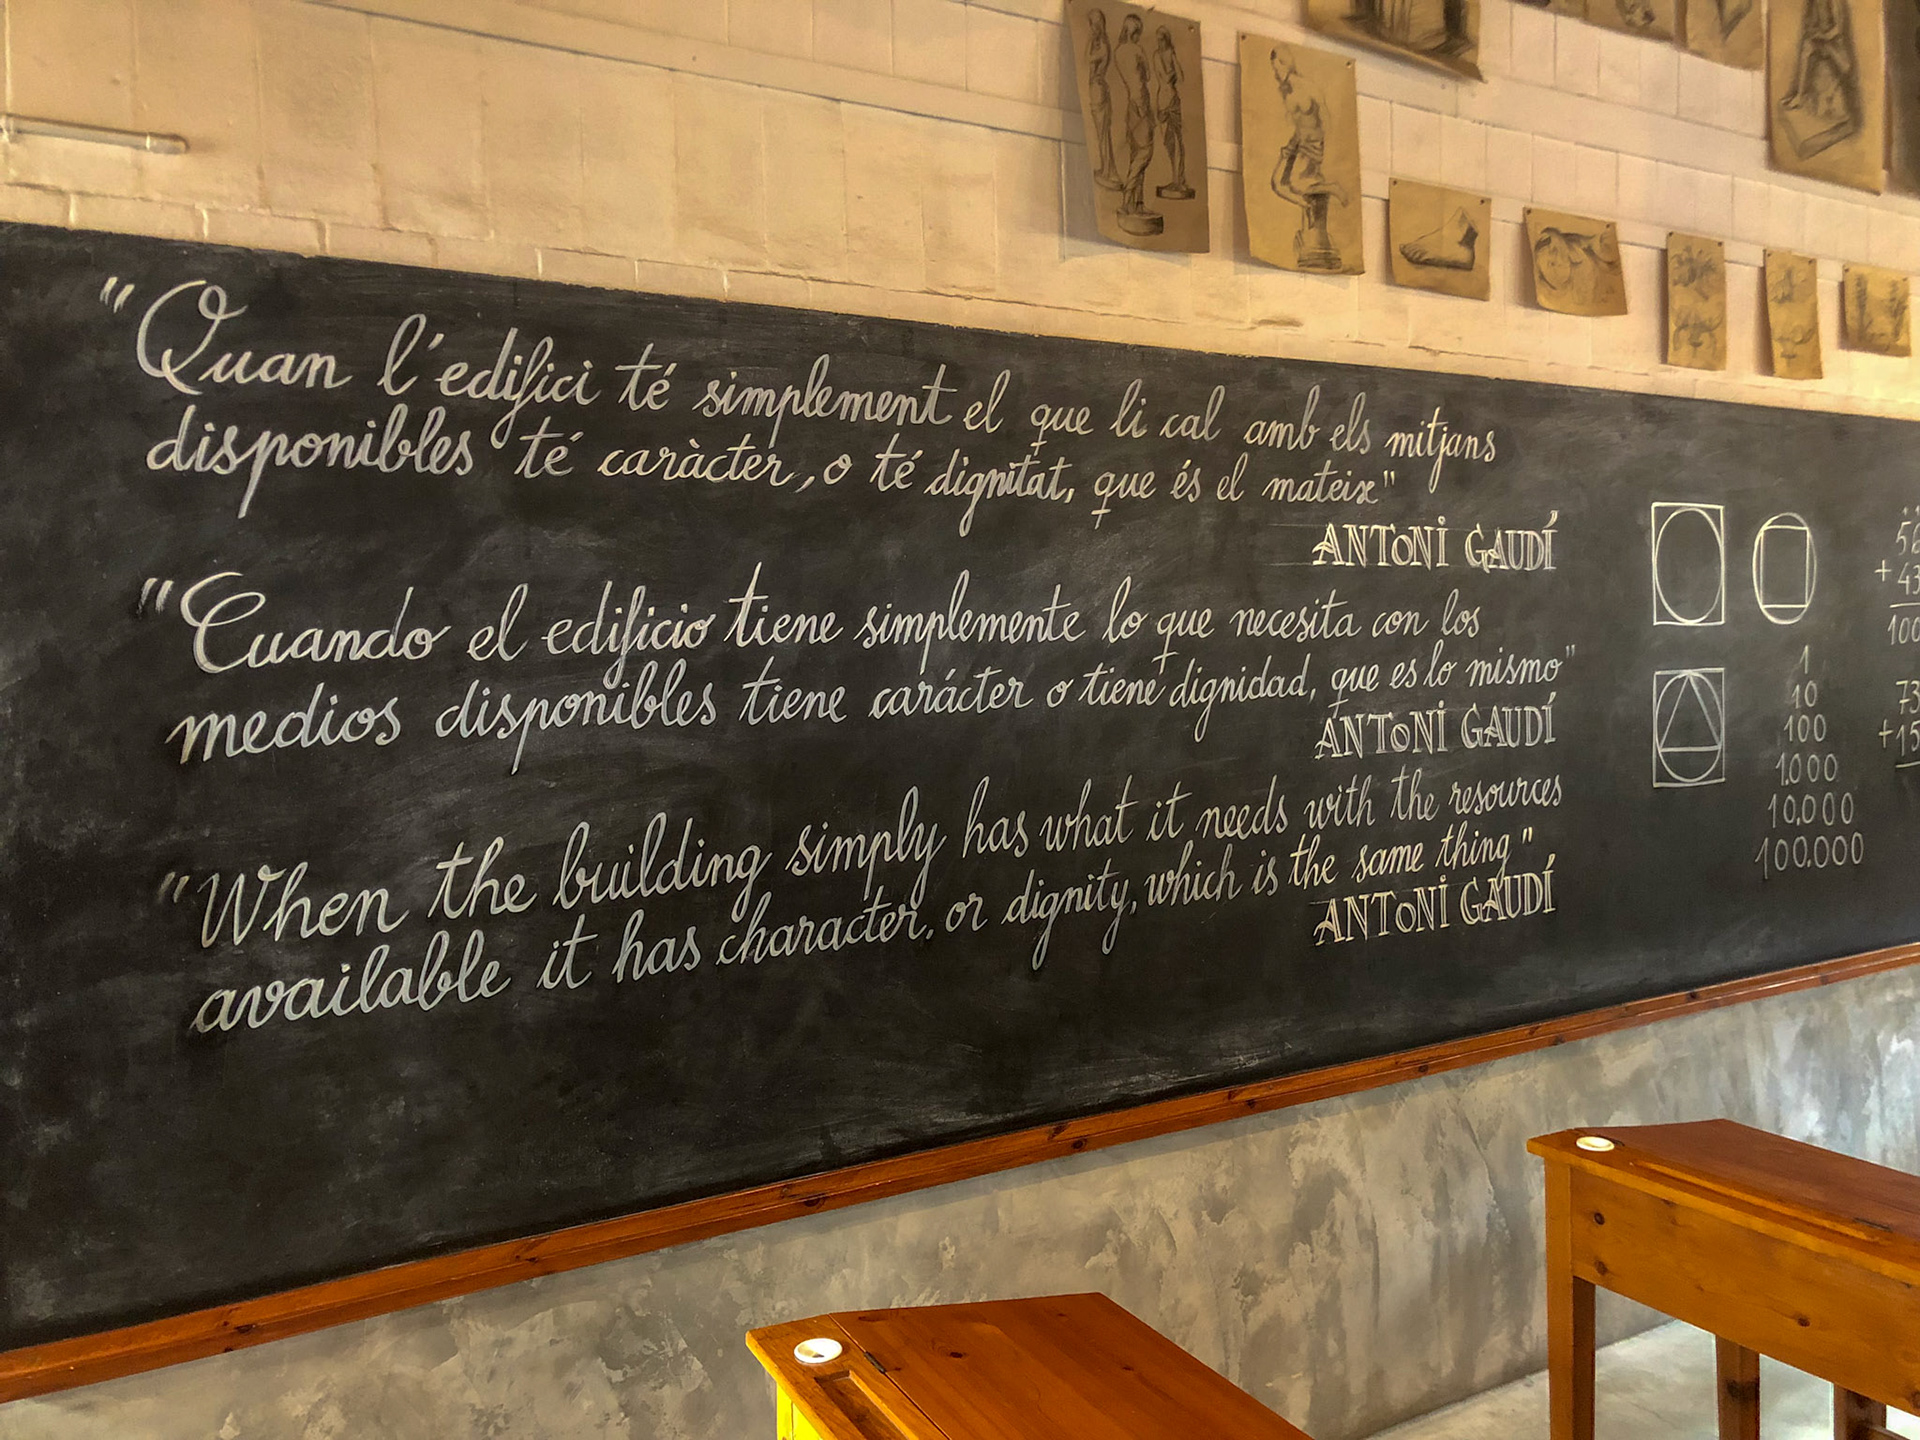 "Quan l'edifici té simplement el que li cal amb els mitjans
disponibles té caràcter, o té dignitat, que és el mateix"
ANTONI GAUDÍ
"Cuando el edificio tiene simplemente lo que necesita con los
medios disponibles tiene carácter o tiene dignidad, que es lo mismo"
ANTONI GAUDÍ
"When the building simply has what it needs with the resources
available it has character, or dignity, which is the same thing"
ANTONI GAUDÍ
1
10
100
1.000
10.000
100.000
+ 43
100
73
+15